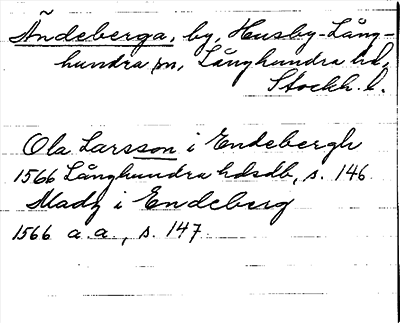 Ändeberga, by, Husby-Lång-
hundra sn, Långhundra hd,
Stockh. l.
Ola Larsson i Endebergh
1566 Långhundra hdsdb, s. 146.
Madz i Endeberg
1566 a.a., s. 147.